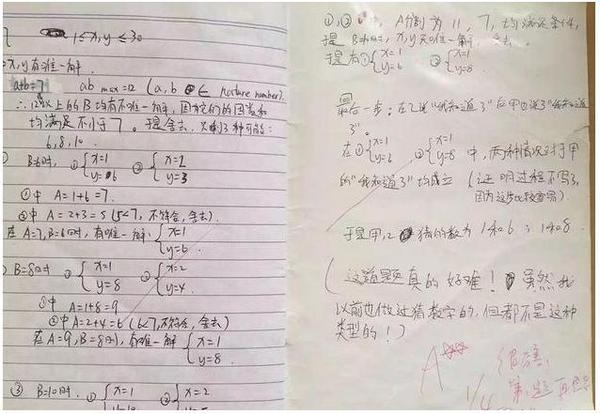 1≤x,y≤30
x,y有唯一解.
a+b=7 ab max=12 (a,b∈ nature number).
∴12以上的B均有不唯一解,因它们的因数和
均满足不小于7。于是舍去,只剩3种可能:
6,8,10.
① B=6时, ①{x=1 y=6 ②{x=2 y=3
①中 A=1+6=7.
②中 A=2+3=5(5<7,不符合,舍去)
在A=7,B=6时,有唯一解:{x=1 y=6.
② B=8时 ①{x=1 y=8 ②{x=2 y=4.
①中 A=1+8=9
②中A=2+4=6(6<7,不符合,舍去)
在A=9,B=8时,有唯一解{x=1 y=8.
③ B=10时. ①{x=1 ②{x=2
A分别为11,7,均满足条件,
于是B=10时,x,y不唯一解,舍去.
于是有①{x=1 y=6 ②{x=1 y=8
最后一步:在乙说“我知道了”后甲也说了“我知道
了”。
在①{x=1 y=6 ②{x=1 y=8 中,两种情况对于甲
的“我知道了”均成立(证明过程不写了,
因为这步比较容易)
于是甲,乙猜的数为1和6;1和8.
(这道题真的好难!虽然我
以前也做过猜数字的,但都不是这种
类型的!)
A